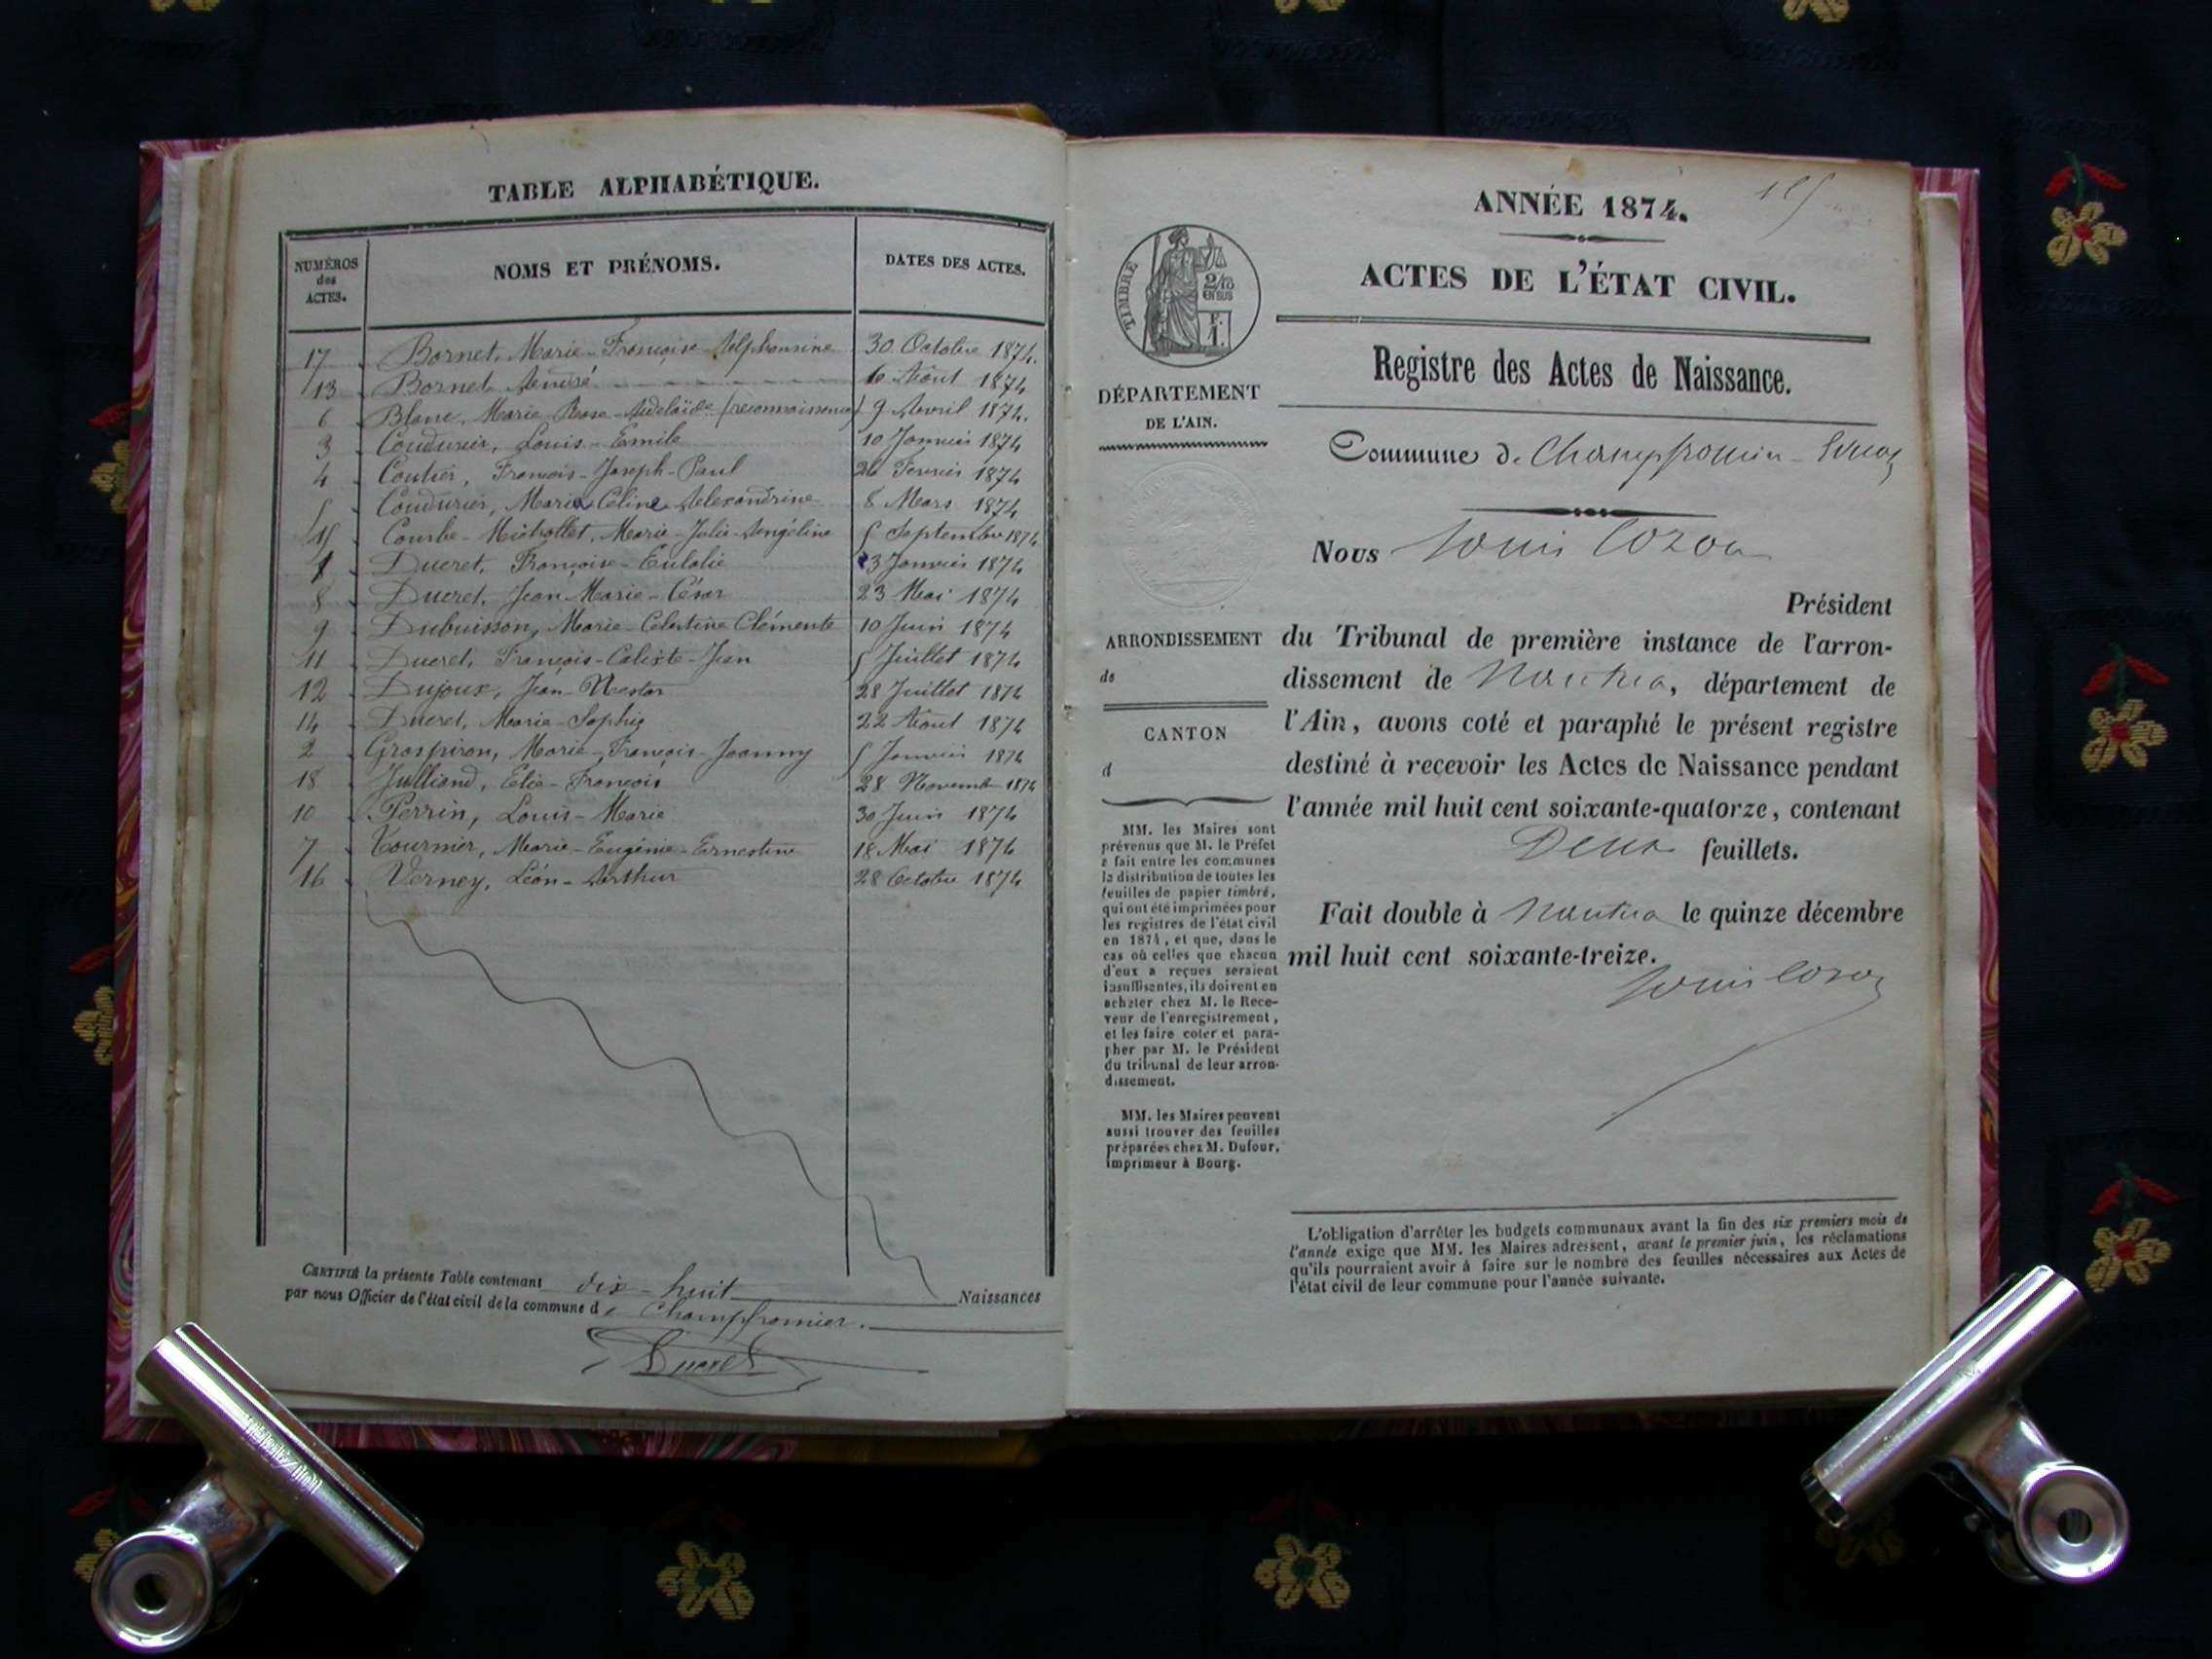 TABLE ALPHABÉTIQUE.
NUMÉROS
des
ACTES.
NOMS ET PRÉNOMS.
DATES DES ACTES.
17 Bornet, Marie-Françoise-Alphonsine 30 Octobre 1874.
13 Bornet André 6 Août 1874
6 Blanc, Marie Rose-Adelaïde (reconnaissance) 9 Avril 1874.
3 Coudurier, Louis-Emile 10 Janvier 1874
4 Coutier, François-Joseph-Paul 26 Fevrier 1874
5 Coudurier, Marie Céline Alexandrine 8 Mars 1874
15 Courbe-Michollet, Marie-Julie-Angéline 5 Septembre 1874
1 Ducret, Françoise-Eulalie 3 Janvier 1874
8 Ducret, Jean Marie-César 23 Mai 1874
9 Dubuisson, Marie-Celestine Clémente 10 Juin 1874
11 Ducret, François-Calixte-Jean 5 Juillet 1874
12 Dujoux, Jean-Nestor 28 Juillet 1874
14 Ducret, Marie-Sophie 22 Août 1874
2 Grospiron, Marie-François-Joanny 5 Janvier 1874
18 Julliand, Elie-François 28 Novemb 1874
10 Perrin, Louis-Marie 30 Juin 1874
7 Tournier, Marie-Eugénie-Ernestine 18 Mai 1874
16 Verney, Léon-Arthur 28 Octobre 1874
CERTIFIÉ la présente Table contenant dix-huit Naissances
par nous Officier de l'état civil de la commune de Champfromier.
Ducret
ANNÉE 1874.
TIMBRE
2/10
EN SUS
F.
1.
ACTES DE L'ÉTAT CIVIL.
Registre des Actes de Naissance.
DÉPARTEMENT
DE L'AIN.
Commune de Champfromier
Nous Louis Cozon
Président
ARRONDISSEMENT
de
CANTON
d
du Tribunal de première instance de l'arron-
dissement de Nantua, département de
l'Ain, avons coté et paraphé le présent registre
destiné à recevoir les Actes de Naissance pendant
l'année mil huit cent soixante-quatorze, contenant
Deux feuillets.
Fait double à Nantua le quinze décembre
mil huit cent soixante-treize.
Louis Cozon
MM. les Maires sont
prévenus que M. le Préfet
a fait entre les communes
la distribution de toutes les
feuilles de papier timbré,
qui ont été imprimées pour
les registres de l'état civil
en 1874, et que, dans le
cas où celles que chacun
d'eux a reçues seraient
insuffisantes, ils doivent en
acheter chez M. le Rece-
veur de l'enregistrement,
et les faire coter et para-
pher par M. le Président
du tribunal de leur arron-
dissement.
MM. les Maires peuvent
aussi trouver des feuilles
préparées chez M. Dufour,
imprimeur à Bourg.
L'obligation d'arrêter les budgets communaux avant la fin des six premiers mois de
l'année exige que MM. les Maires adressent, avant le premier juin, les réclamations
qu'ils pourraient avoir à faire sur le nombre des feuilles nécessaires aux Actes de
l'état civil de leur commune pour l'année suivante.